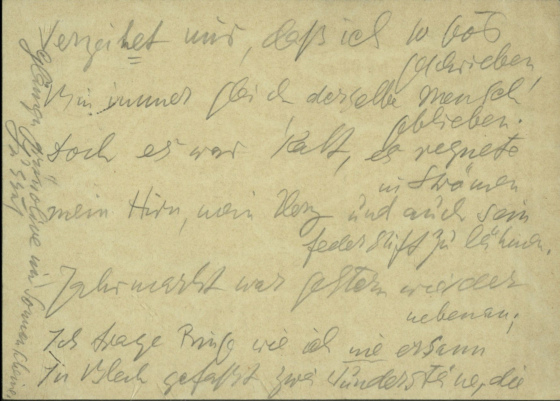 Verzeihet mir, daß ich so bös
geschrieben,
Bin immer gleich derselbe Mensch
geblieben.
Doch es war kalt, es regnete
in Strömen
mein Hirn, mein Herz und auch sein
Federstift zu lähmen.
Jahrmarkt war gestern wieder
nebenan;
Ich trage Ringe wie ich nie ersann
In Blech gefaßt zwei Wundersteine, die